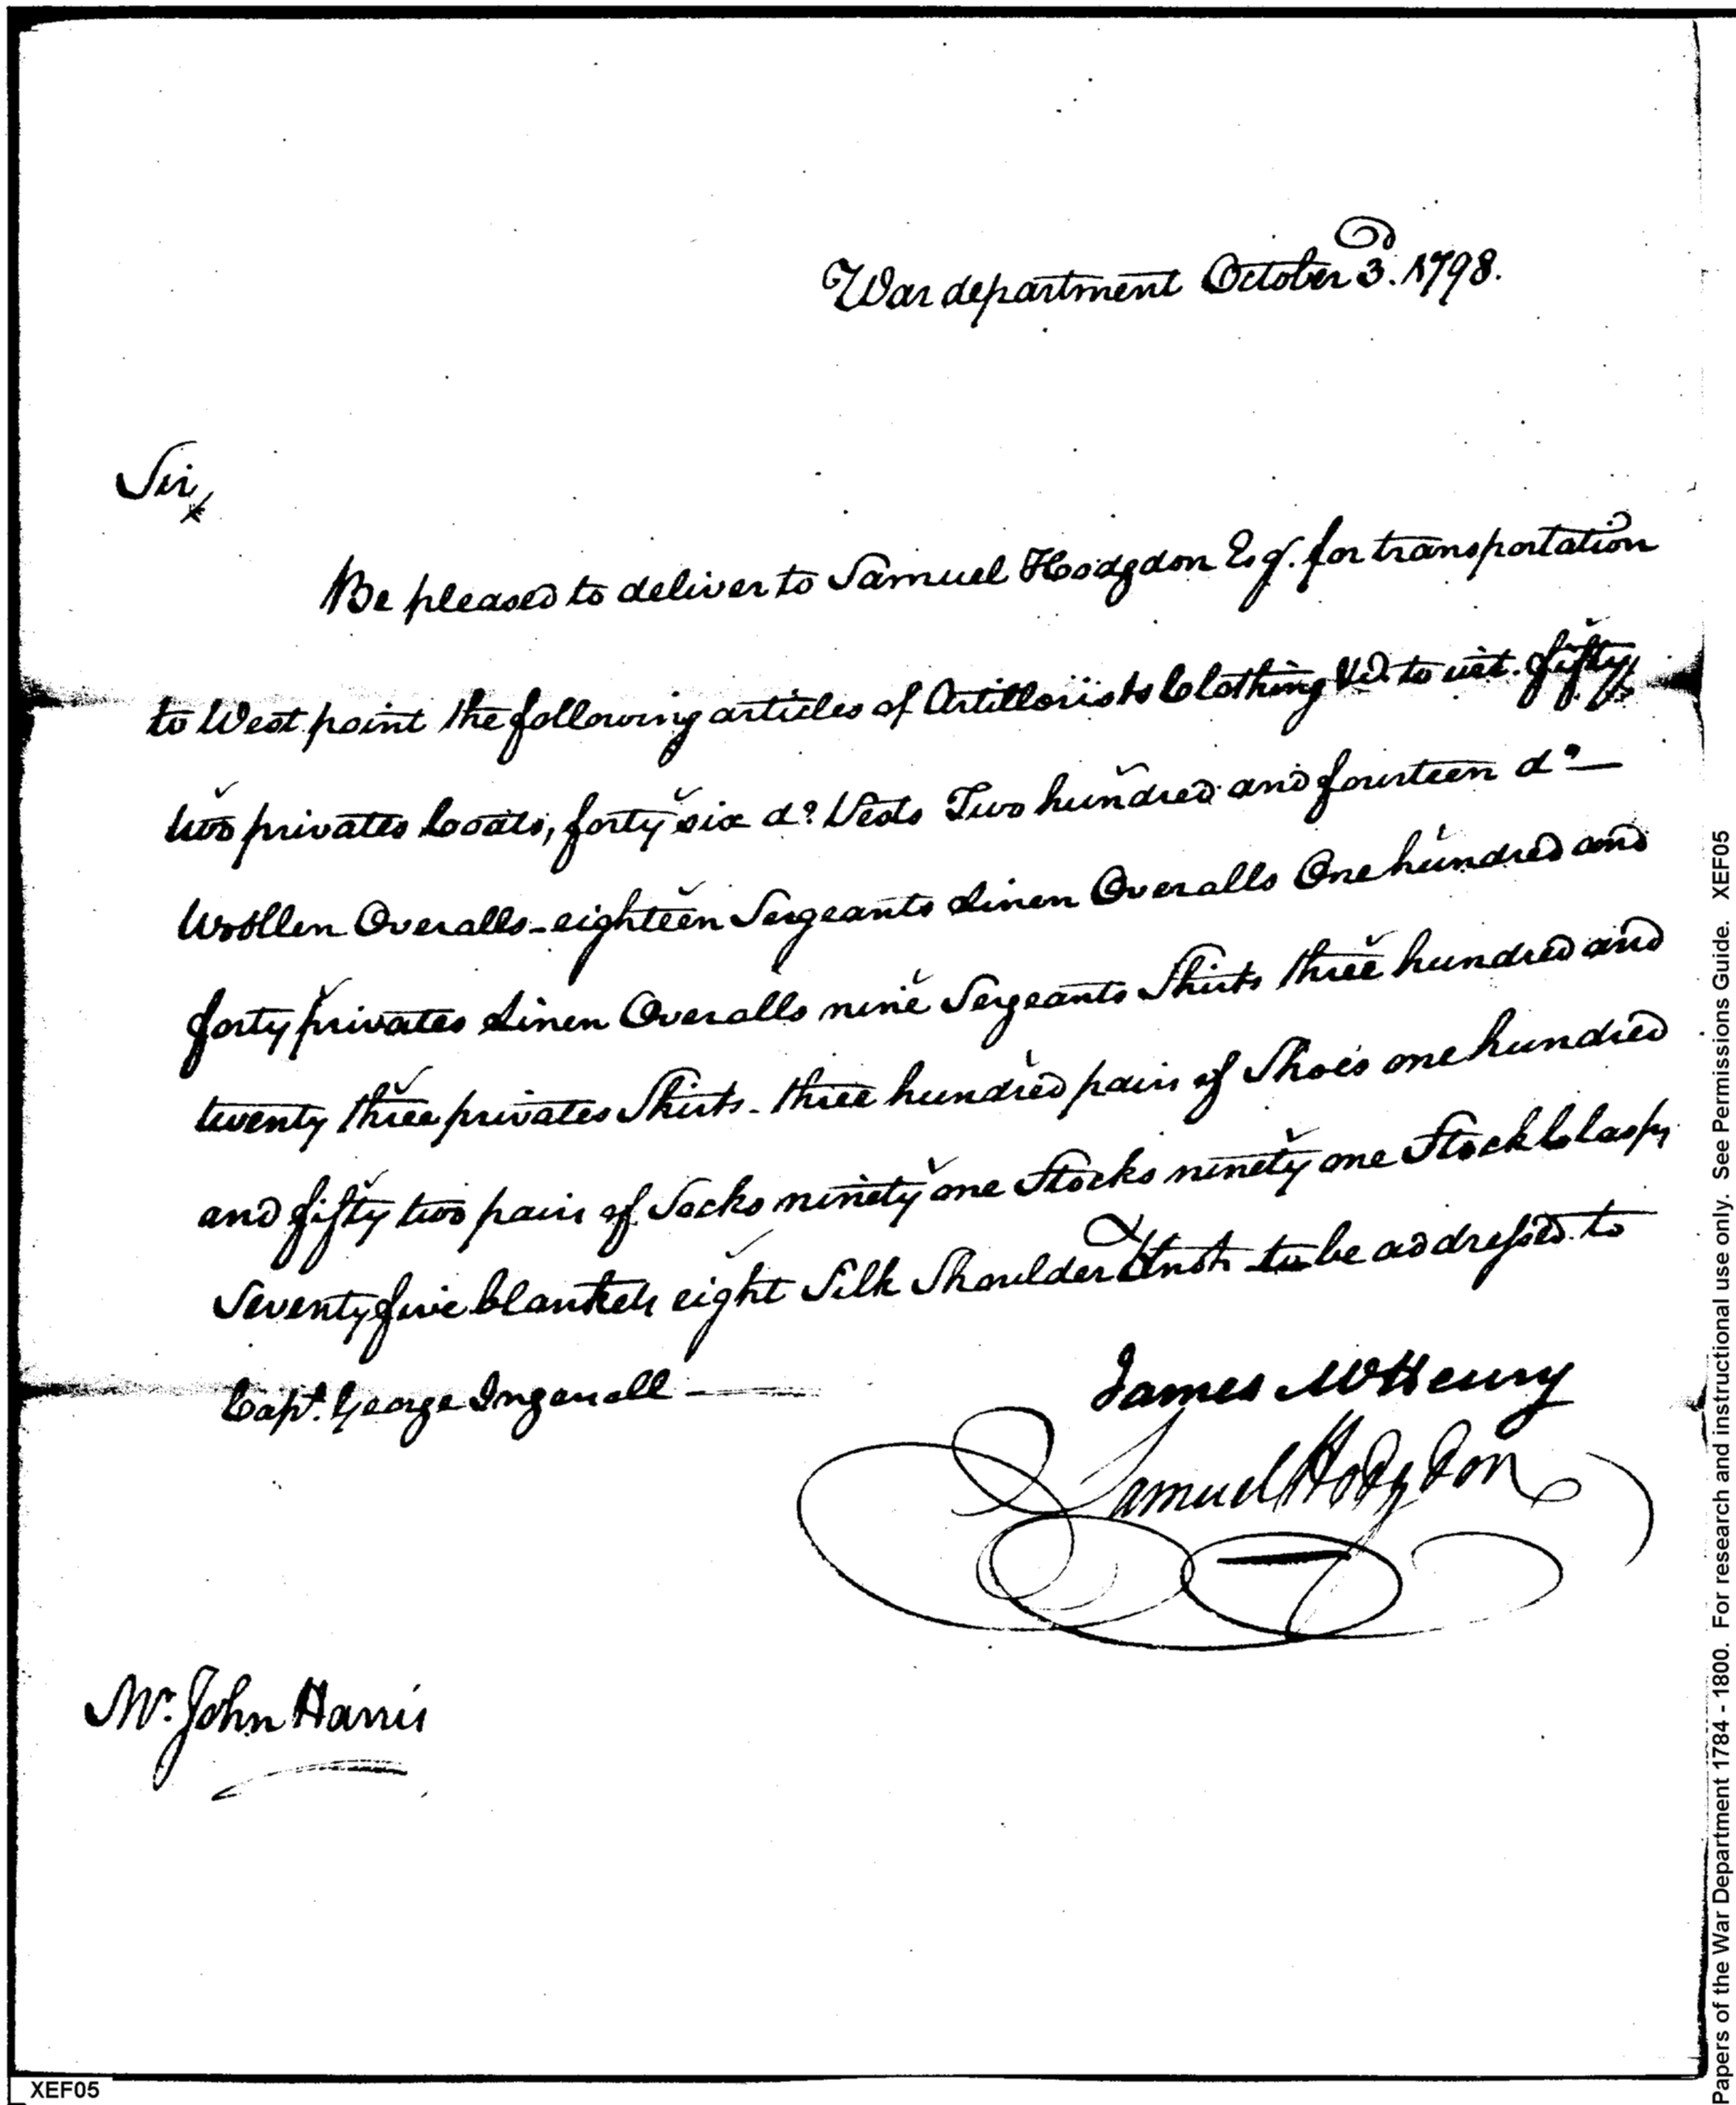 War department October 3d. 1798.
Sir,
Be pleased to deliver to Samuel Hodgdon Esq. for transportation
to West point the following articles of Artillerists Clothing &c. to wit. fifty
two privates Coats, forty six do. Vests Two hundred and fourteen do.
Woollen Overalls - eighteen Sergeants Linen Overalls One hundred and
forty privates Linen Overalls nine Sergeants Shirts three hundred and
twenty three privates Shirts - three hundred pair of Shoes one hundred
and fifty two pair of Socks ninety one Stocks ninety one Stock Clasps
Seventy five blankets eight Silk Shoulder Knots to be addressed to
Capt. George Ingersoll
James McHenry
Samuel Hodgdon
Mr. John Harris
XEF05
Papers of the War Department 1784 - 1800. For research and instructional use only. See Permissions Guide. XEF05